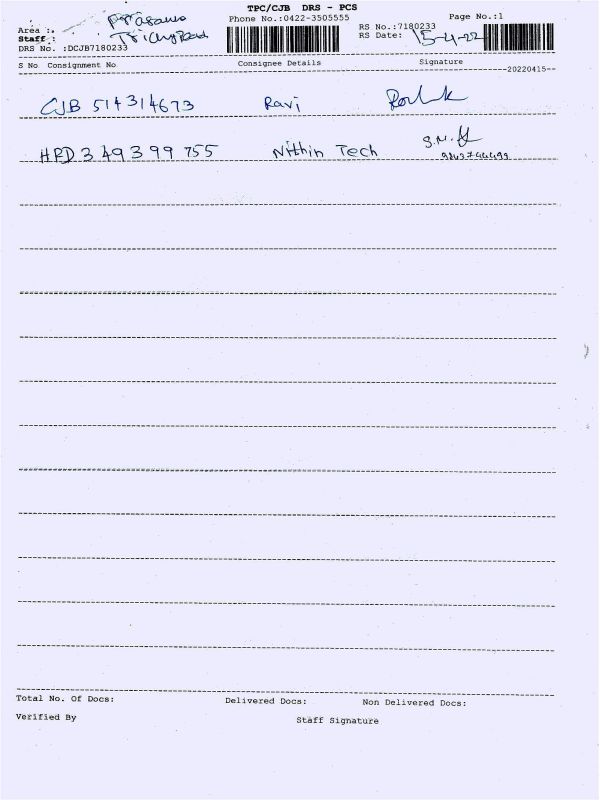 TPC/CJB DRS - PCS
Phone No.:0422-3505555
Page No.:1
Area :
Staff :
Trichy Road
RS No.:7180233
RS Date: 15-4-22
DRS No. :DCJB7180233
S No Consignment No Consignee Details Signature
--20220415--
CJB 514314673 Ravi
HRD 349399755 Nithin Tech
9843744499
Total No. Of Docs: Delivered Docs: Non Delivered Docs:
Verified By Staff Signature